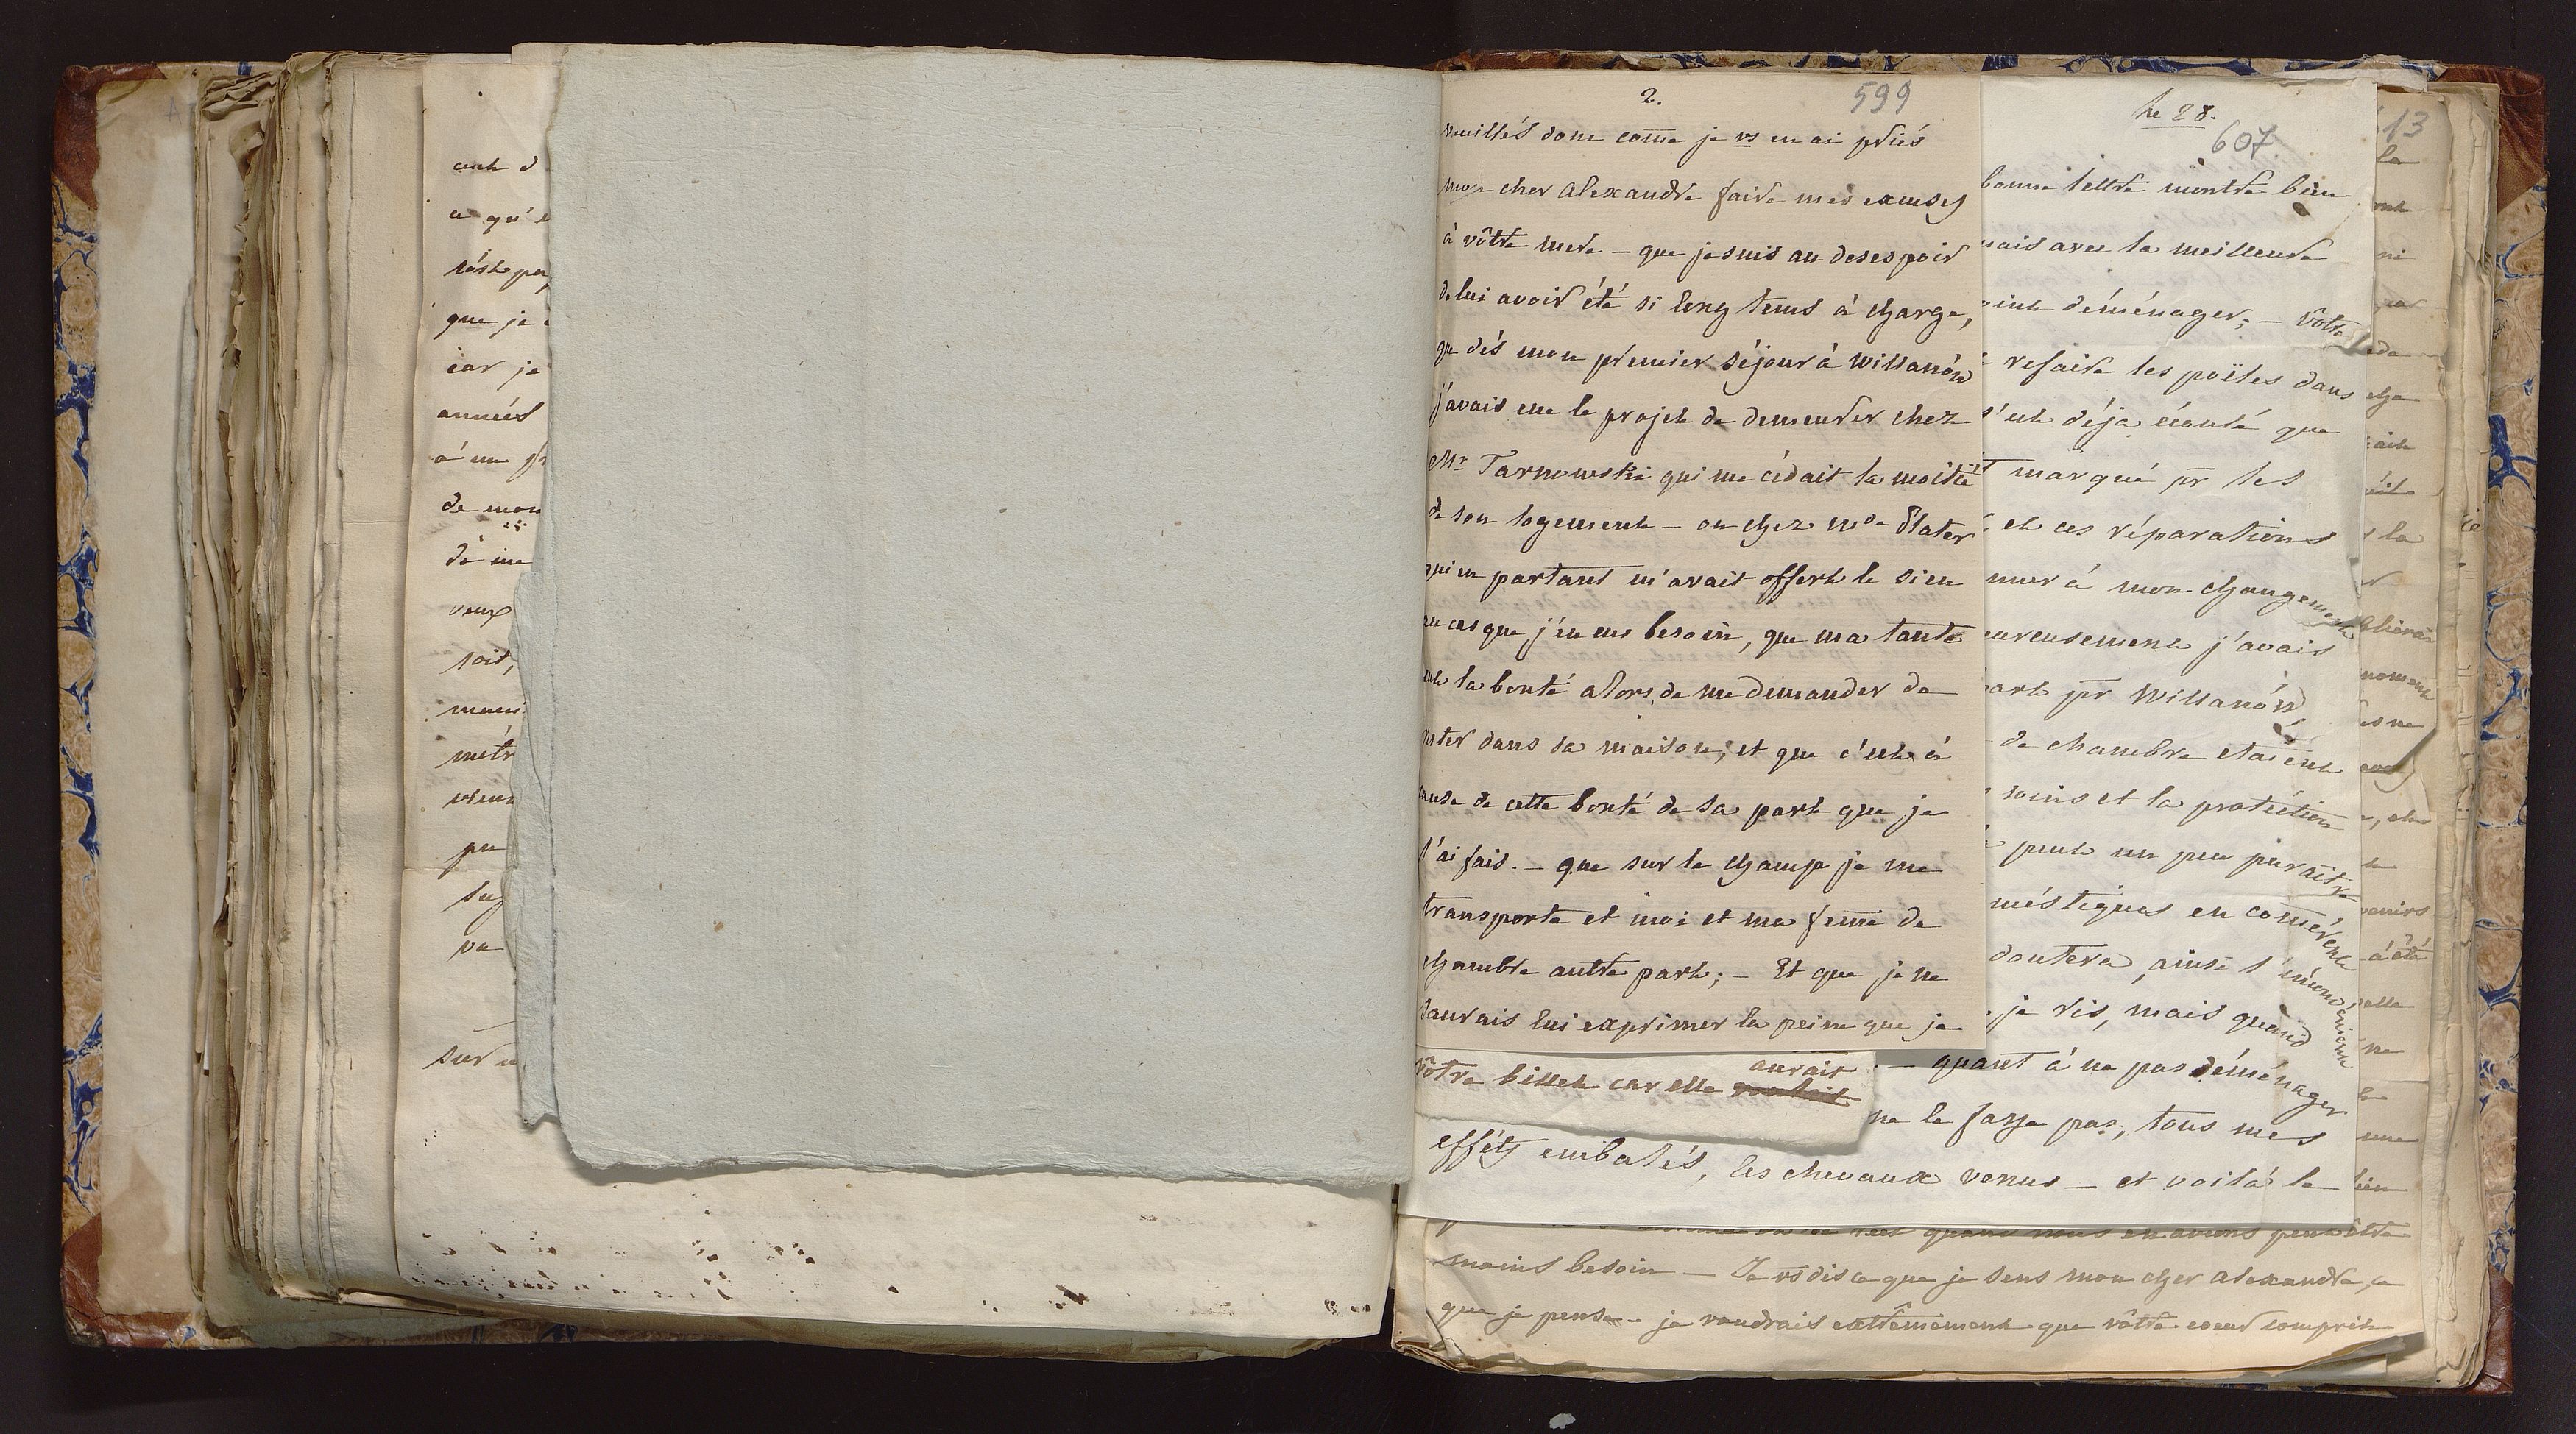 cent d
ce qu'
c'est pa
que je
car je
années
à un
de mon
de me
veux
soit,
mani
mètr
vieux
pu
suf
va
sur u
2.
599
Veuillés donc come je vs en ai priés
mon cher Alexandre faire mes excuses
à vôtre mere – que je suis au desespoir
de lui avoir été si long tems à charge,
que dès mon premier séjour à Willanów
j'avais eue le projet de demeurer chez
Mr Tarnowski qui me cédait la moitié
de son logement – ou chez Mde Plater
qui en partant m'avait offert le sien
au cas que j'en eus besoin, que ma tante
eut la bonté alors, de me demander de
rester dans sa maison, et que c'est à
cause de cette bonté de sa part que je
l'ai fais. – que sur le champ je me
transporte et moi et ma feme de
chambre autre part; – Et que je ne
saurais lui exprimer la peine que je
vôtre billet car elle voulait
aurait
le 28.
607
bonne lettre montre bien
mais avec la meilleure
point déménager; – Vôtre
refaire les poëles dans
s'est déja écoulé que
marqué pr les
et ces réparations
mer à mon changement
eureusement j'avais
part pr Willanów
de chambre etaient
soins et la protéction
peut un peu paraître
méstiques en comérent
doutera, ainsi
je ris, mais quand
– quant à ne pas déménager
ne le fasse pas, tous mes
efféts embalés, les chevaux venus – et voilà le
13
la
ont
ni
la
moment
avec
venirs
a été
elle
ne
le
une
bien
quand nous en avons peut être
moins besoin – Je vs dis ce que je sens mon cher Alexandre, ce
que je pense – je voudrais extrêmement que vôtre coeur comprit